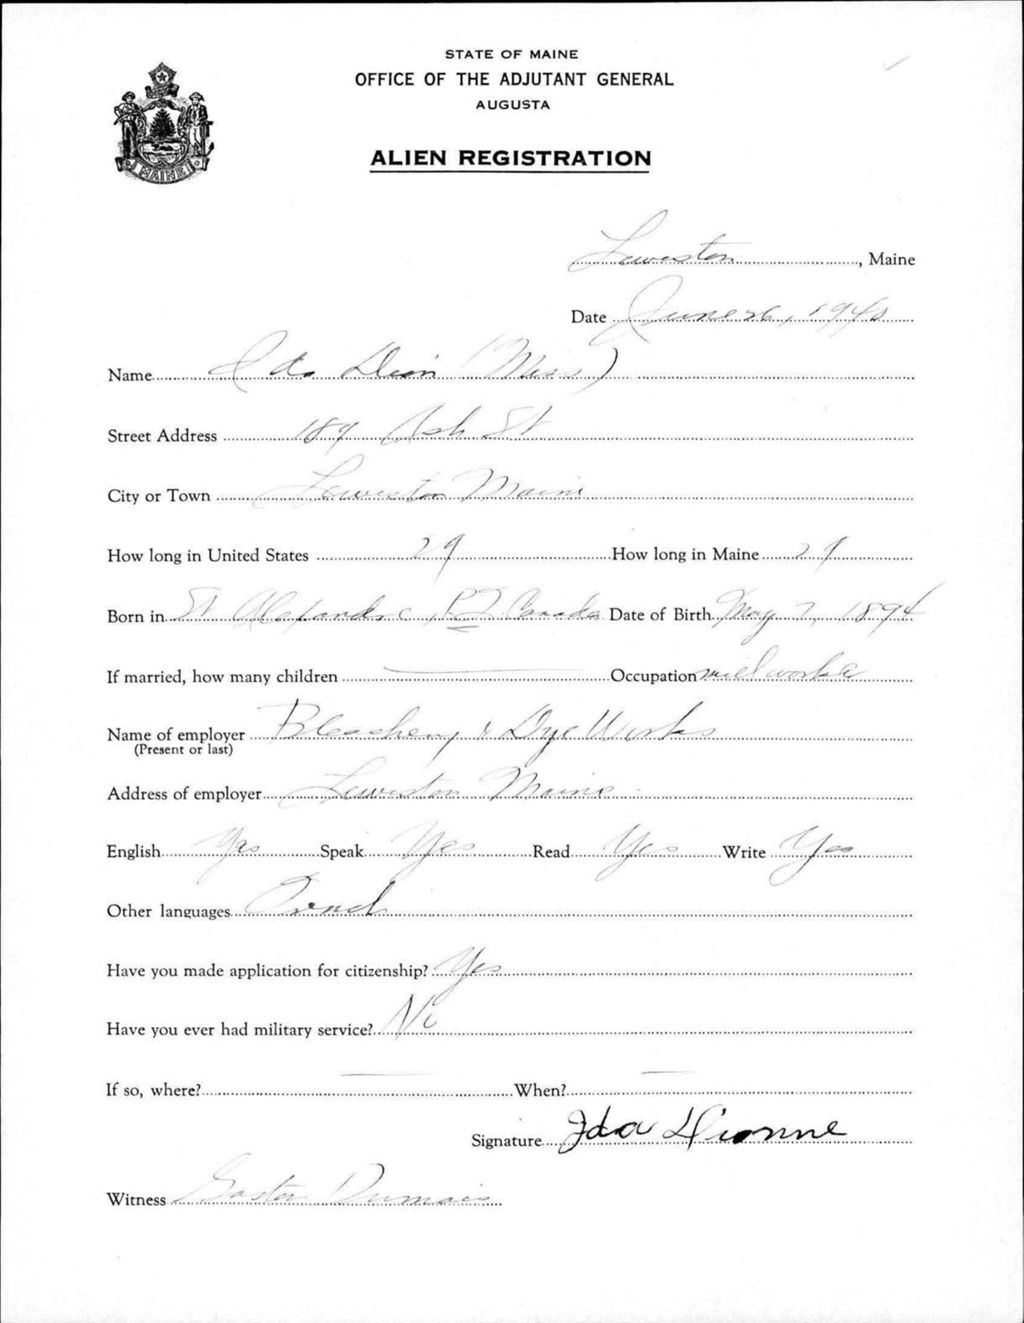 STATE OF MAINE
OFFICE OF THE ADJUTANT GENERAL
AUGUSTA
MAINE
ALIEN REGISTRATION
Lewiston, Maine
Date June 26, 1940
Name Ida Dion (Miss)
Street Address 189 Ash St
City or Town Lewiston Maine
How long in United States 29 How long in Maine 29
Born in St Alexandre, P.Q Canada Date of Birth May 7, 1894
If married, how many children — Occupation mill worker
Name of employer Bleachery & Dye Works
(Present or last)
Address of employer Lewiston Maine
English Yes Speak Yes Read Yes Write Yes
Other languages French
Have you made application for citizenship? Yes
Have you ever had military service? No
If so, where? — When? —
Signature Ida Dionne
Witness Dumais